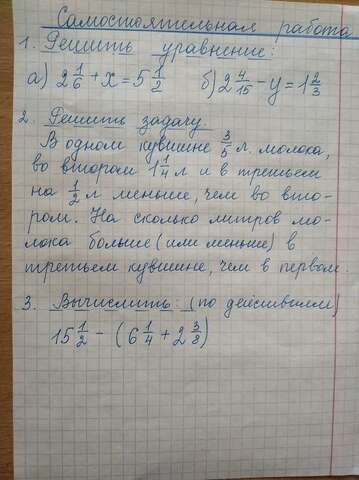 Самостоятельная работа
1. Решить уравнение:
а) 2 1/6 + x = 5 1/2   б) 2 4/15 - y = 1 2/3
2. Решить задачу.
В одном кувшине 3/5 л. молока,
во втором 1 1/4 л и в третьем
на 1/2 л меньше, чем во вто-
ром. На сколько литров мо-
лока больше (или меньше) в
третьем кувшине, чем в первом.
3. Вычислить: (по действиям)
15 1/2 - (6 1/4 + 2 3/8)